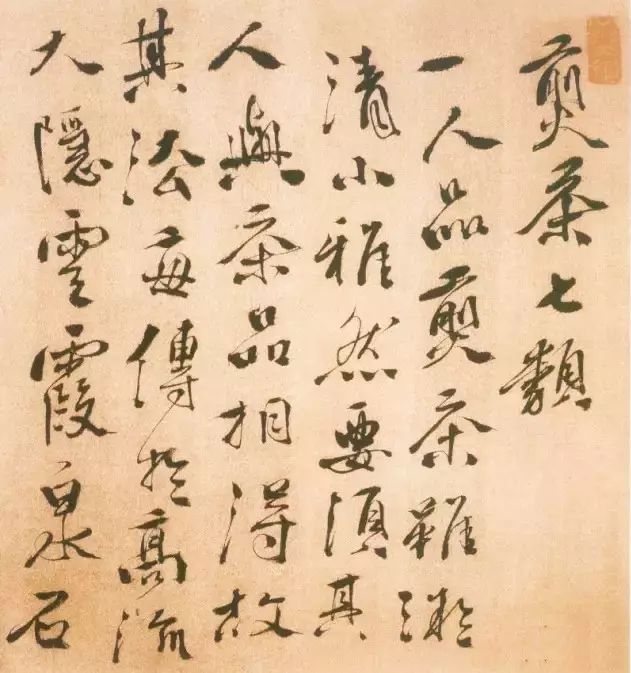 煎茶七類
一人品煎茶雖凝
清小雅然要須其
人與茶品相得故
其法每傳於高流
大隱雲霞泉石